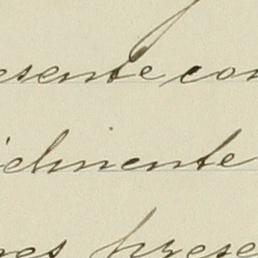 esente con
idmente
res prese